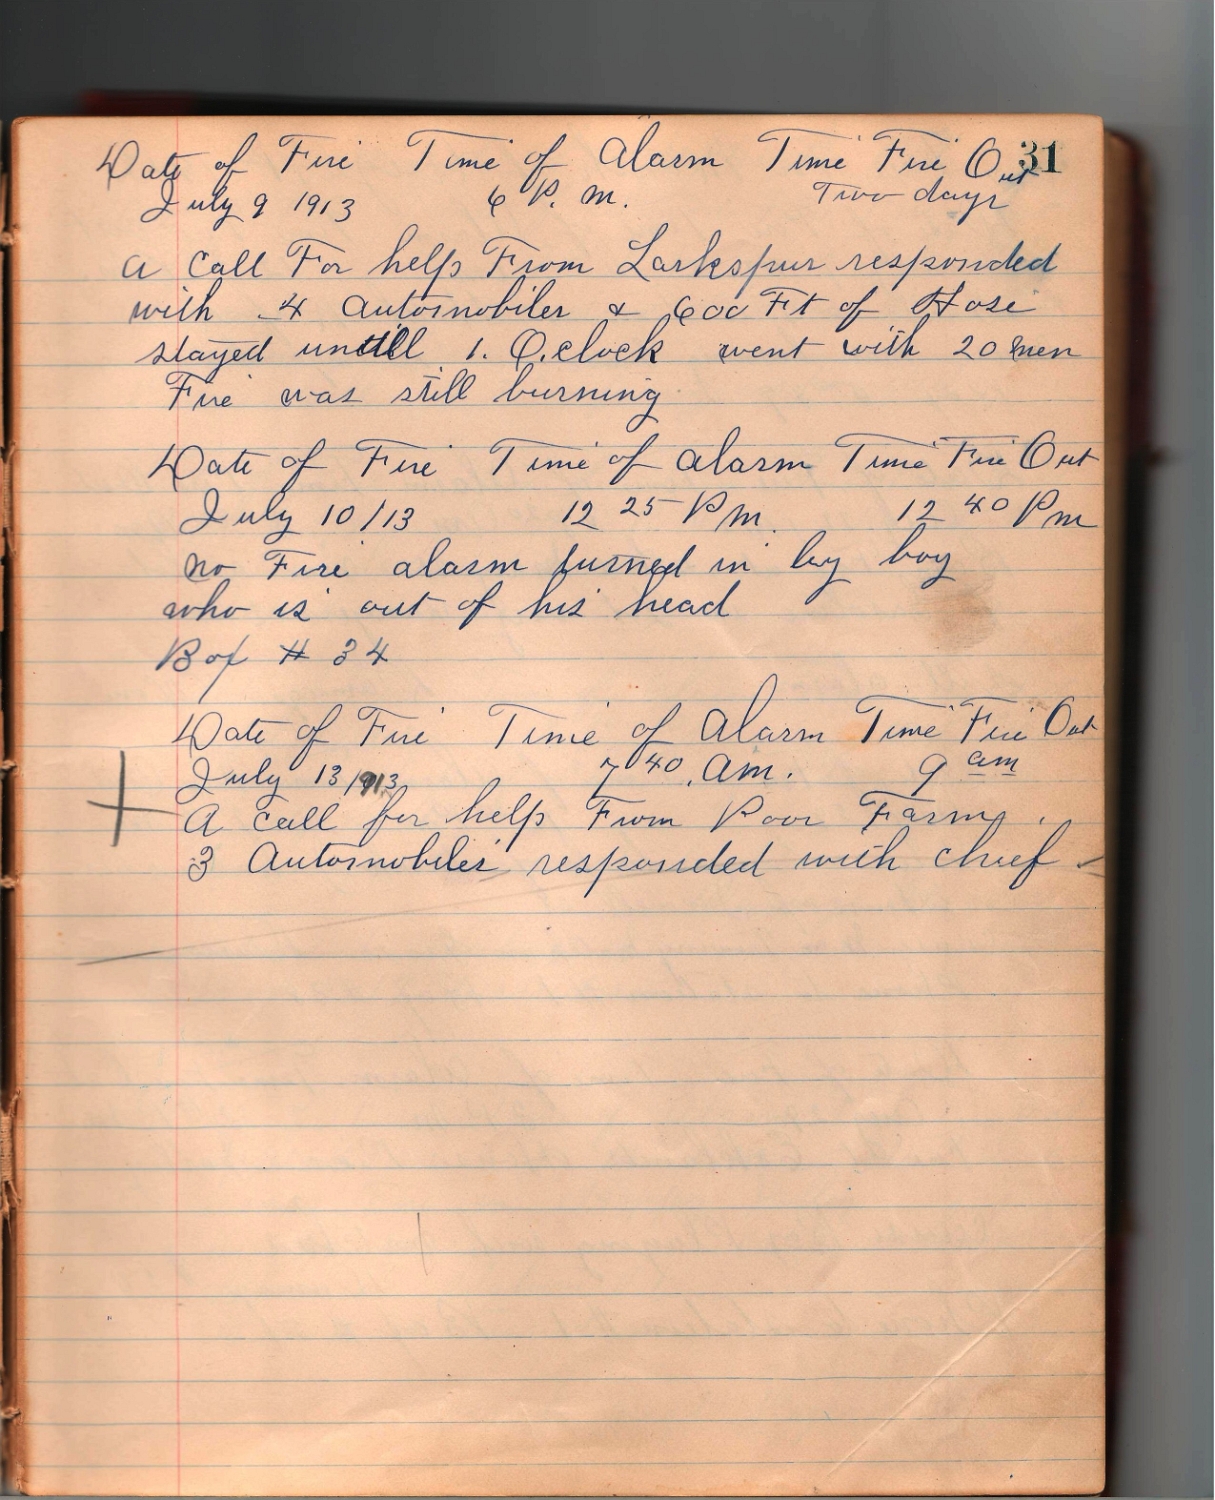 Date of Fire Time of Alarm Time Fire Out 31
July 9 1913 6 P. m. Two days
a call For help From Larkspur responded
with 4 automobiles & 600 Ft of Hose
stayed untill 1. O.clock went with 20 men
Fire was still burning
Date of Fire Time of alarm Time Fire Out
July 10/13 12 25 Pm. 12 40 Pm
no Fire alarm turned in by boy
who is out of his head
Box # 34
Date of Fire Time of Alarm Time Fire Out
July 13/913 7 40 am. 9 am
A call for help From Poor Farm.
3 Automobiles responded with chief